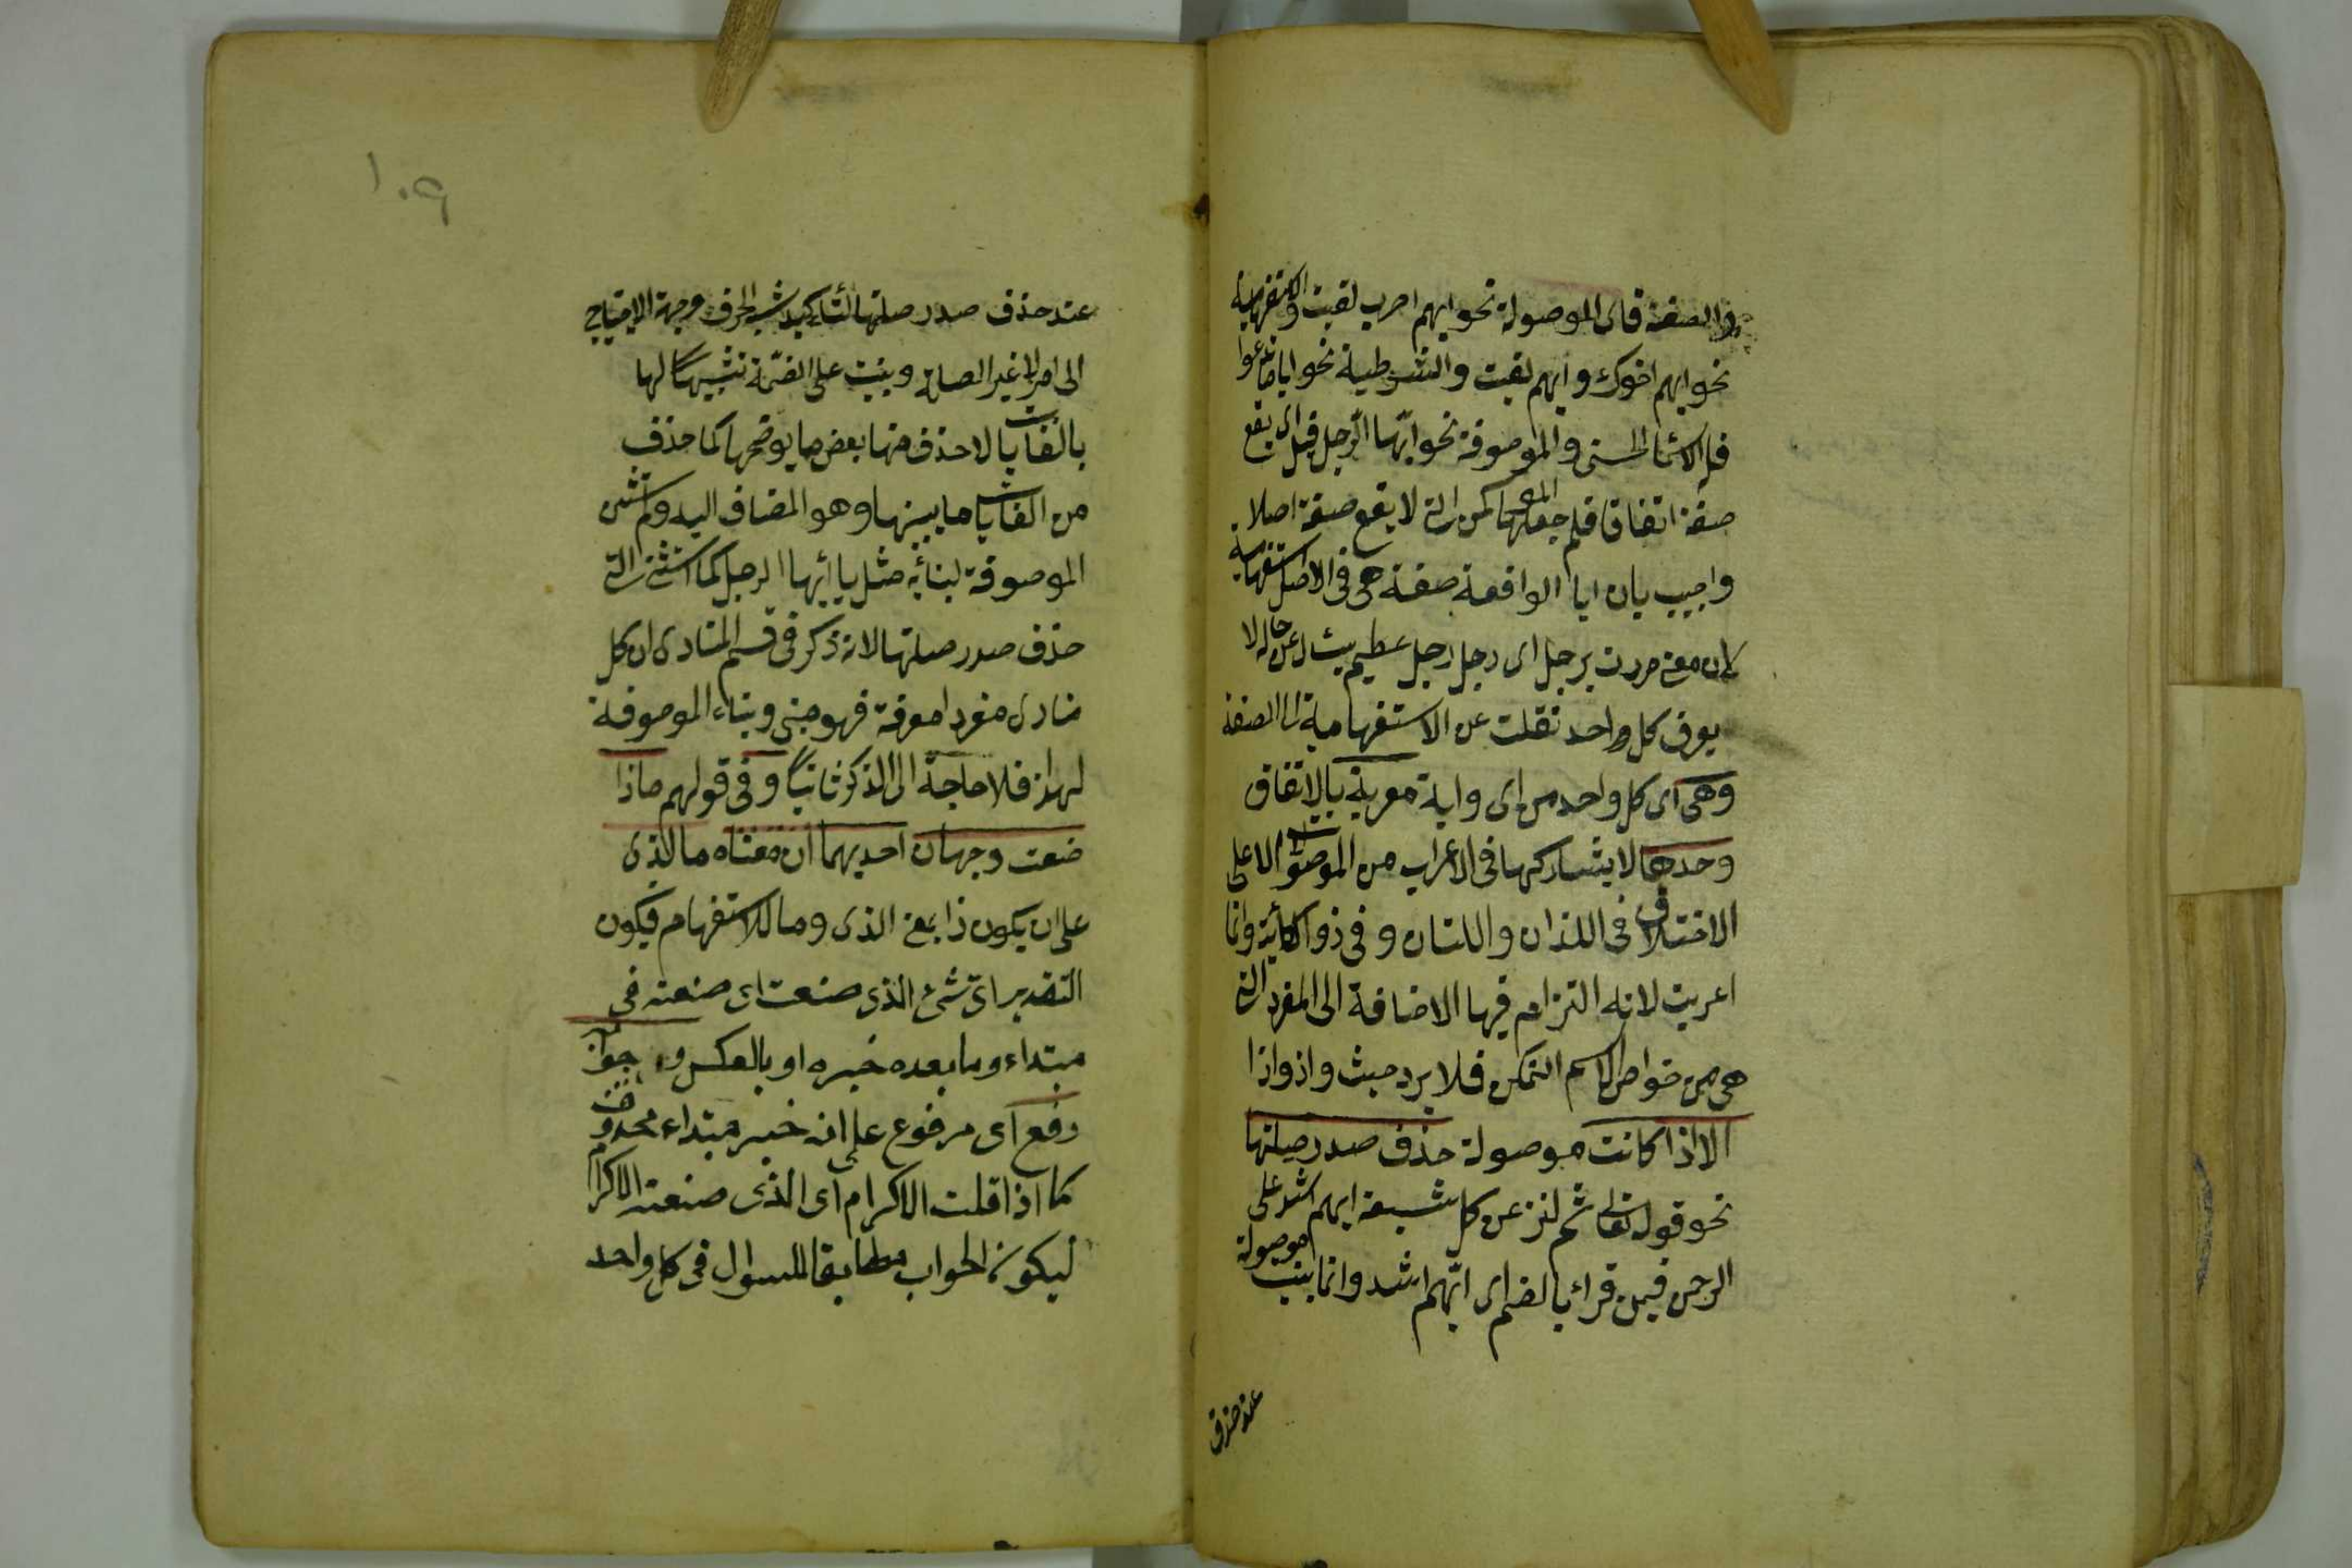 والصفة فاى الموصولة نحو ايهم اضرب لقيت والاستفهامية
نحو ايهم اخوك وايهم لقيت والشرطية نحو اياما تدعوا
فله الاسماء الحسنى والموصوفة نحو ايّها الرّجل قيل اى يقع
صفة اتفاقا فلم جعلها المص كمن التى لا يقع صفة اصلا
واجيب بان ايا الواقعة صفة هى فى الاصل استفهامية
لان معنى مررت برجل اى رجل رجل عظيم يسئال عن حاله لا
يعرف كل واحد نقلت عن الاستفهامية الى الصفة
وهى اى كل واحد من اى واية معربة بالاتفاق
وحدها لا يشاركها فى الاعراب من الموصولات الا على
الاختلاف فى اللذان واللتان و فى ذو الطائية وانما
اعربت لانه التزام فيها الاضافة الى المفرد التى
هى من خواص الاسم المتمكن فلا يرد حيث واذ واذا
الا اذا كانت موصولة حذف صدر صلتها
نحو قوله تعالى ثم لننزعن من كل شيعة ايهم اشد على
الرحمن فيمن قراء بالضم اى ايّهم اشد وانما بنيت موصولة
عند حذف
١٠٩
عند حذف صدر صلتها لتأكيد شبه الحرف وجهة الاحتياج
الى امر لا غير الصلة وبنيت على الضّمة تشبيها لها
بالغايات لا حذف منها بعض ما يوضحها كما حذف
من الغايات ما يبينها وهو المضاف اليه ولم يستثن
الموصوفة لبنائه مثل يا ايّها الرجل كما استثنى التى
حذف صدر صلتها لانه ذكر فى قسم المنادى ان كل
منادى مفردا معرفة فهو مبنى وبناء الموصوفة
لهذا فلا حاجة الى الذكر ثانيًا و فى قولهم ماذا
صنعت وجهان احديهما ان معناه ما الذى
على ان يكون ذا بمعنى الذى وما للاستفهام فيكون
التقدير اىّ شئ الذى صنعت اى صنعته فى
مبتداء وما بعده خبره او بالعكس و جوابه
رفع اى مرفوع على انه خبر مبتداء محذوف
كما اذا قلت الاكرام اى الذى صنعته الاكرام
ليكون الجواب مطابقا للسوال فى كل واحد